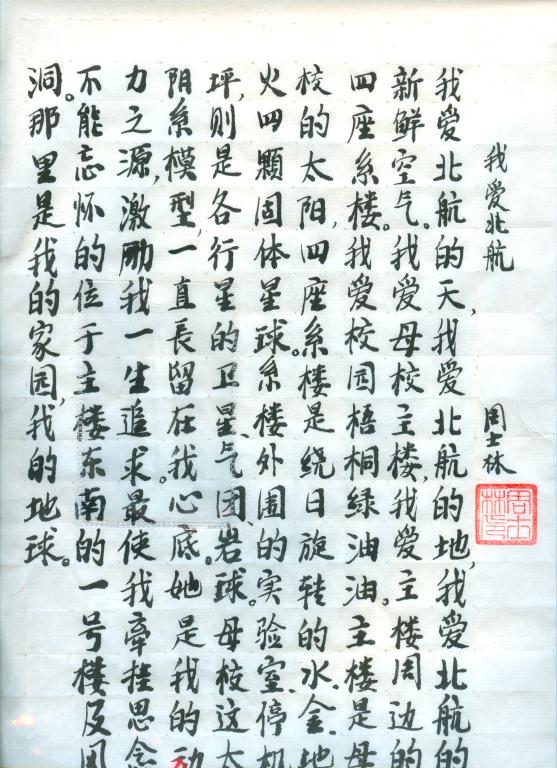 我爱北航 周士林
周士林印
我爱北航的天,我爱北航的地,我爱北航的
新鲜空气。我爱母校主楼,我爱主楼周边的
四座系楼。我爱校园梧桐綠油油。主楼是母
校的太阳,四座系楼是绕日旋转的水、金、地
火四顆固体星球。系楼外围的实验室、停机
坪,则是各行星的卫星、气团、岩球。母校这太
阴系模型,一直長留在我心底。她是我的动
力之源,激励我一生追求最使我牽挂思念
不能忘怀的位于主楼东南的一号楼及风
洞。那里是我的家园,我的地球。